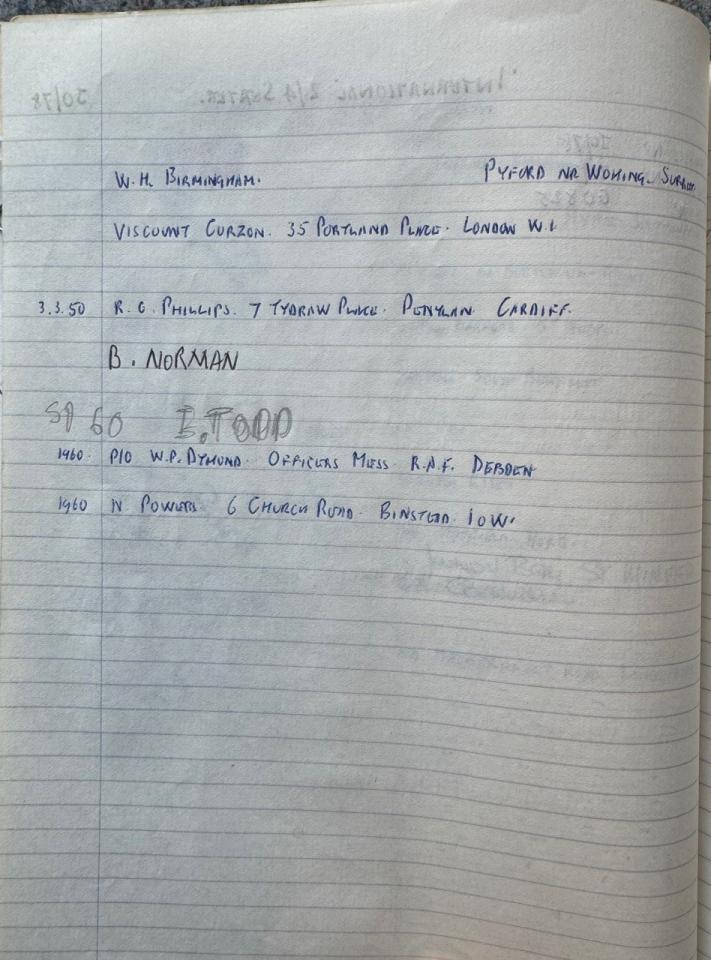 W. H. BIRMINGHAM. PYFORD NR WOKING. SURREY
VISCOUNT CURZON. 35 PORTLAND PLACE. LONDON W.1.
3.3.50 R. G. PHILLIPS. 7 TYDRAW PLACE. PENYLAN. CARDIFF.
B. NORMAN
60 TODD
1960. P/O W.P. DYMOND. OFFICERS MESS R.A.F. DEBDEN
1960 N POWERS 6 CHURCH ROAD. BINSTEAD. IOW.